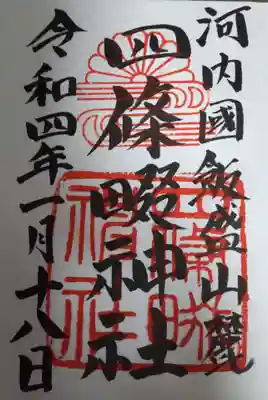 河内國飯盛山麓
四條畷神社
令和四年一月十八日